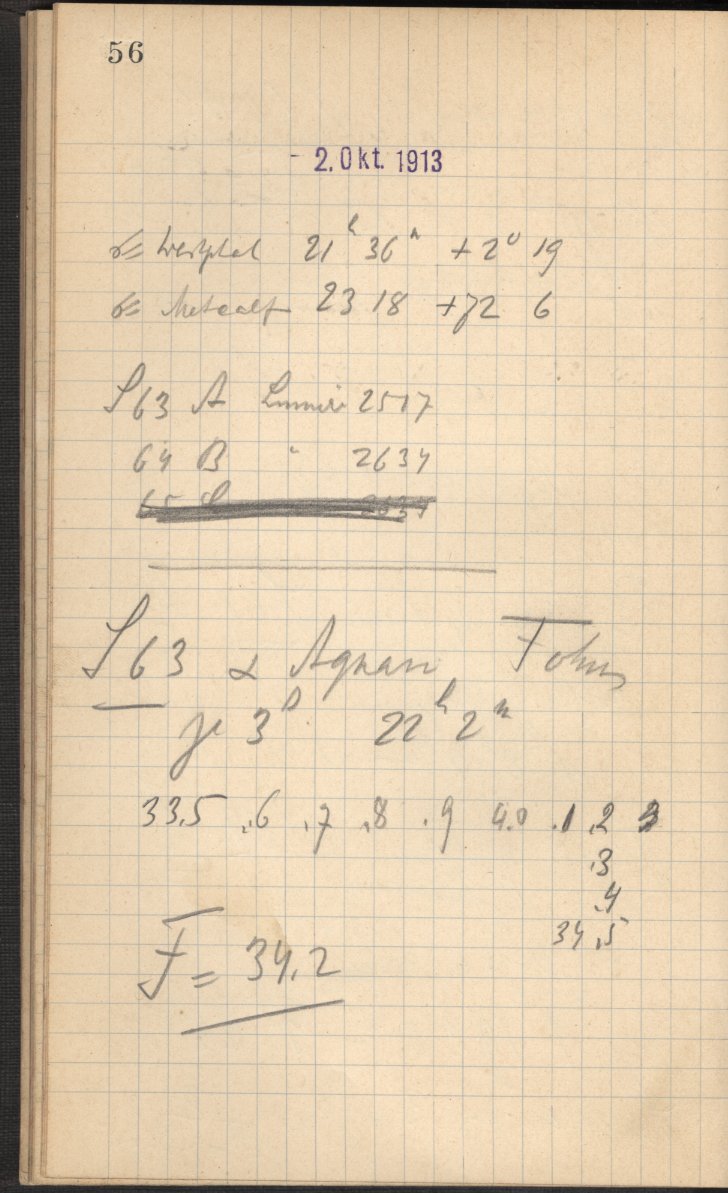 56
- 2. Okt. 1913
☄ Westphal 21ʰ 36ᵐ +2° 19
☄ Metcalf 23 18 +72 6
S 63 A Lumière 2517
64 B " 2634
S 63 α Aquarii Fokus
je 3ˢ 22ʰ 2ᵐ
33.5 .6 .7 .8 .9 4.0 .1 .2
.3
.4
34.5
F = 34.2